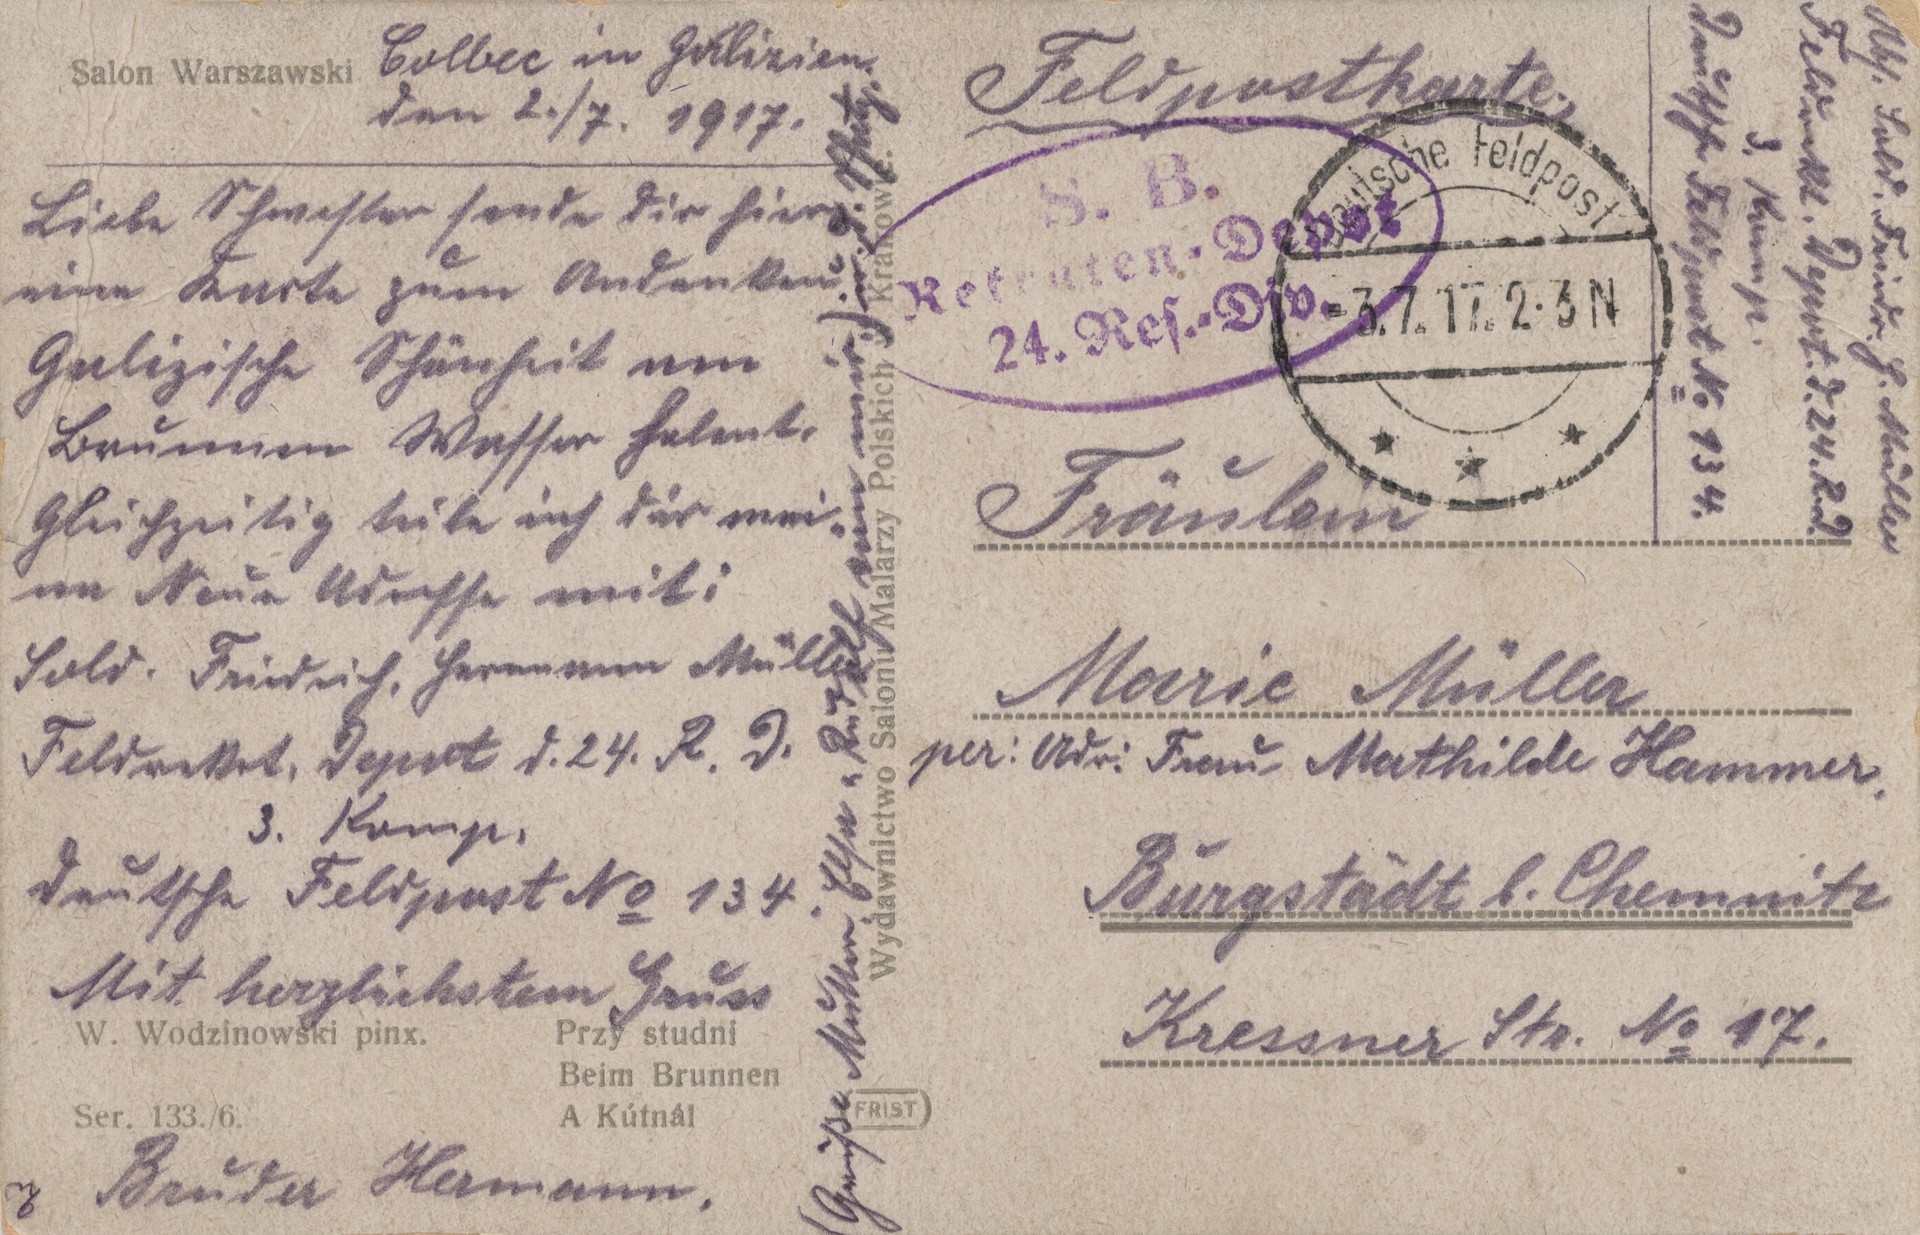 Salon Warszawski
Colbec in Galizien,
den 2./7. 1917.
Liebe Schwester sende dir hier
eine Karte zum Andenken
Galizische Schönheit am
Brunnen Wasser holent.
Gleichzeitig teile ich dir mei-
ne Neue Adresse mit:
Sold. Friedrich, Hermann Müller
Feldrekrt. Depot d. 24. R. D.
3. Komp.
deutsche Feldpost No 134.
Mit herzlichstem Gruss
W. Wodzinowski pinx.
Przy studni
Beim Brunnen
A Kútnál
Ser. 133./6.
Bruder Hermann.
(Grüße Mutter, Elsa u. Rudolf von mir.)
Wydawnictwo Salonu Malarzy Polskich Krakow
FRIST
Feldpostkarte.
S. B.
Rekruten-Depot
24. Res.-Div.
Deutsche Feldpost
-3.7.17. 2-3 N
Abs. Sold. Friedr. H. Müller
Feldrekt. Depot. d. 24. R.D.
3. Komp.
Deutsche Feldpost No 134.
Fräulein
Marie Müller
per: Adr: Frau Mathilde Hammer.
Burgstädt b. Chemnitz
Kressner Str. No 17.